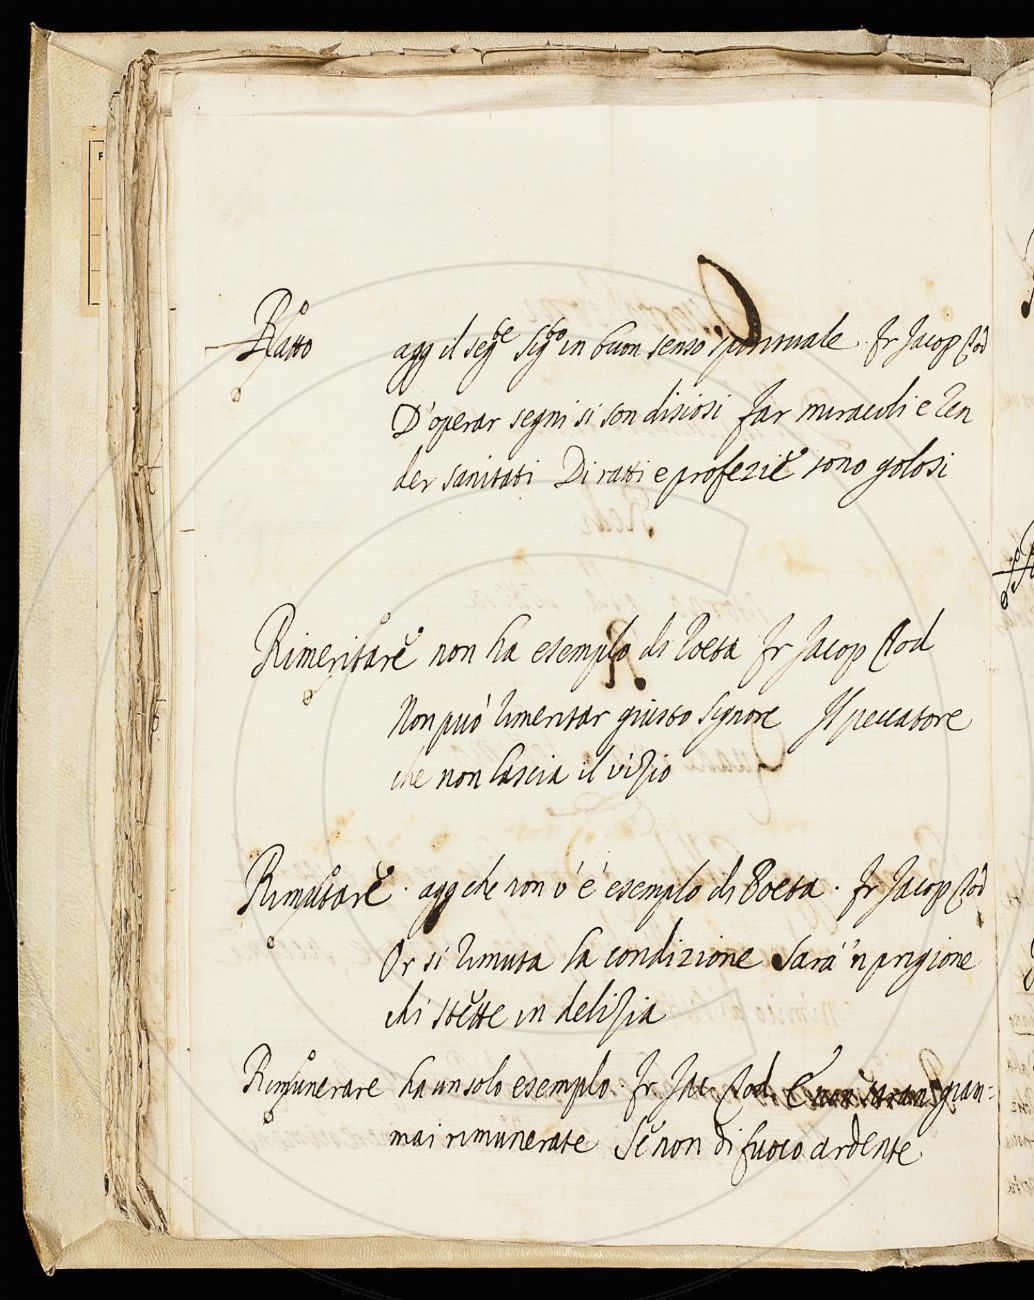 Ratto agg il seg.te sig.to in buon senso spirituale. Fr Jacop Tod
D'operar segni si son disiosi Far miracoli e Ren
der sanitati Di ratti e profezie sono golosi
Rimeritare non ha esemplo di Poeta Fr Jacop Tod
Non può rimeritar giusto signore Il peccatore
che non lascia il vizio
Rimutare. agg che non v'è esemplo di Poeta. Fr Jacop Tod
Or si rimuta la condizione Sarà 'n prigione
chi stette in delizia
Rimunerare ha un solo esemplo. Fr Jac Tod. giam=
mai rimunerate Se non di fuoco ardente